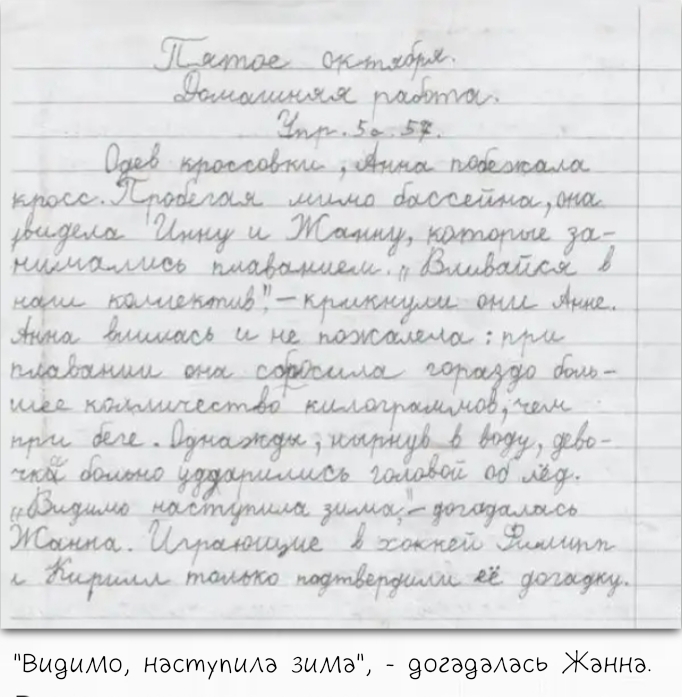 Пятое октября.
Домашняя работа.
Упр. 5а. 57.
Одев кроссовки, Анна побежала
кросс. Пробегая мимо бассейна, она
увидела Инну и Жанну, которые за-
нимались плаванием. „Вливайся в
наш коллектив", – крикнули они Анне.
Анна влилась и не пожалела: при
плавании она сбросила гораздо боль-
шее количество килограммов, чем
при беге. Однажды, нырнув в воду, дево-
чки больно ударились головой об лёд.
„Видимо наступила зима", – догадалась
Жанна. Играющие в хоккей Филипп
и Кирилл только подтвердили её догадку.
"Видимо, наступила зима", - догадалась Жанна.